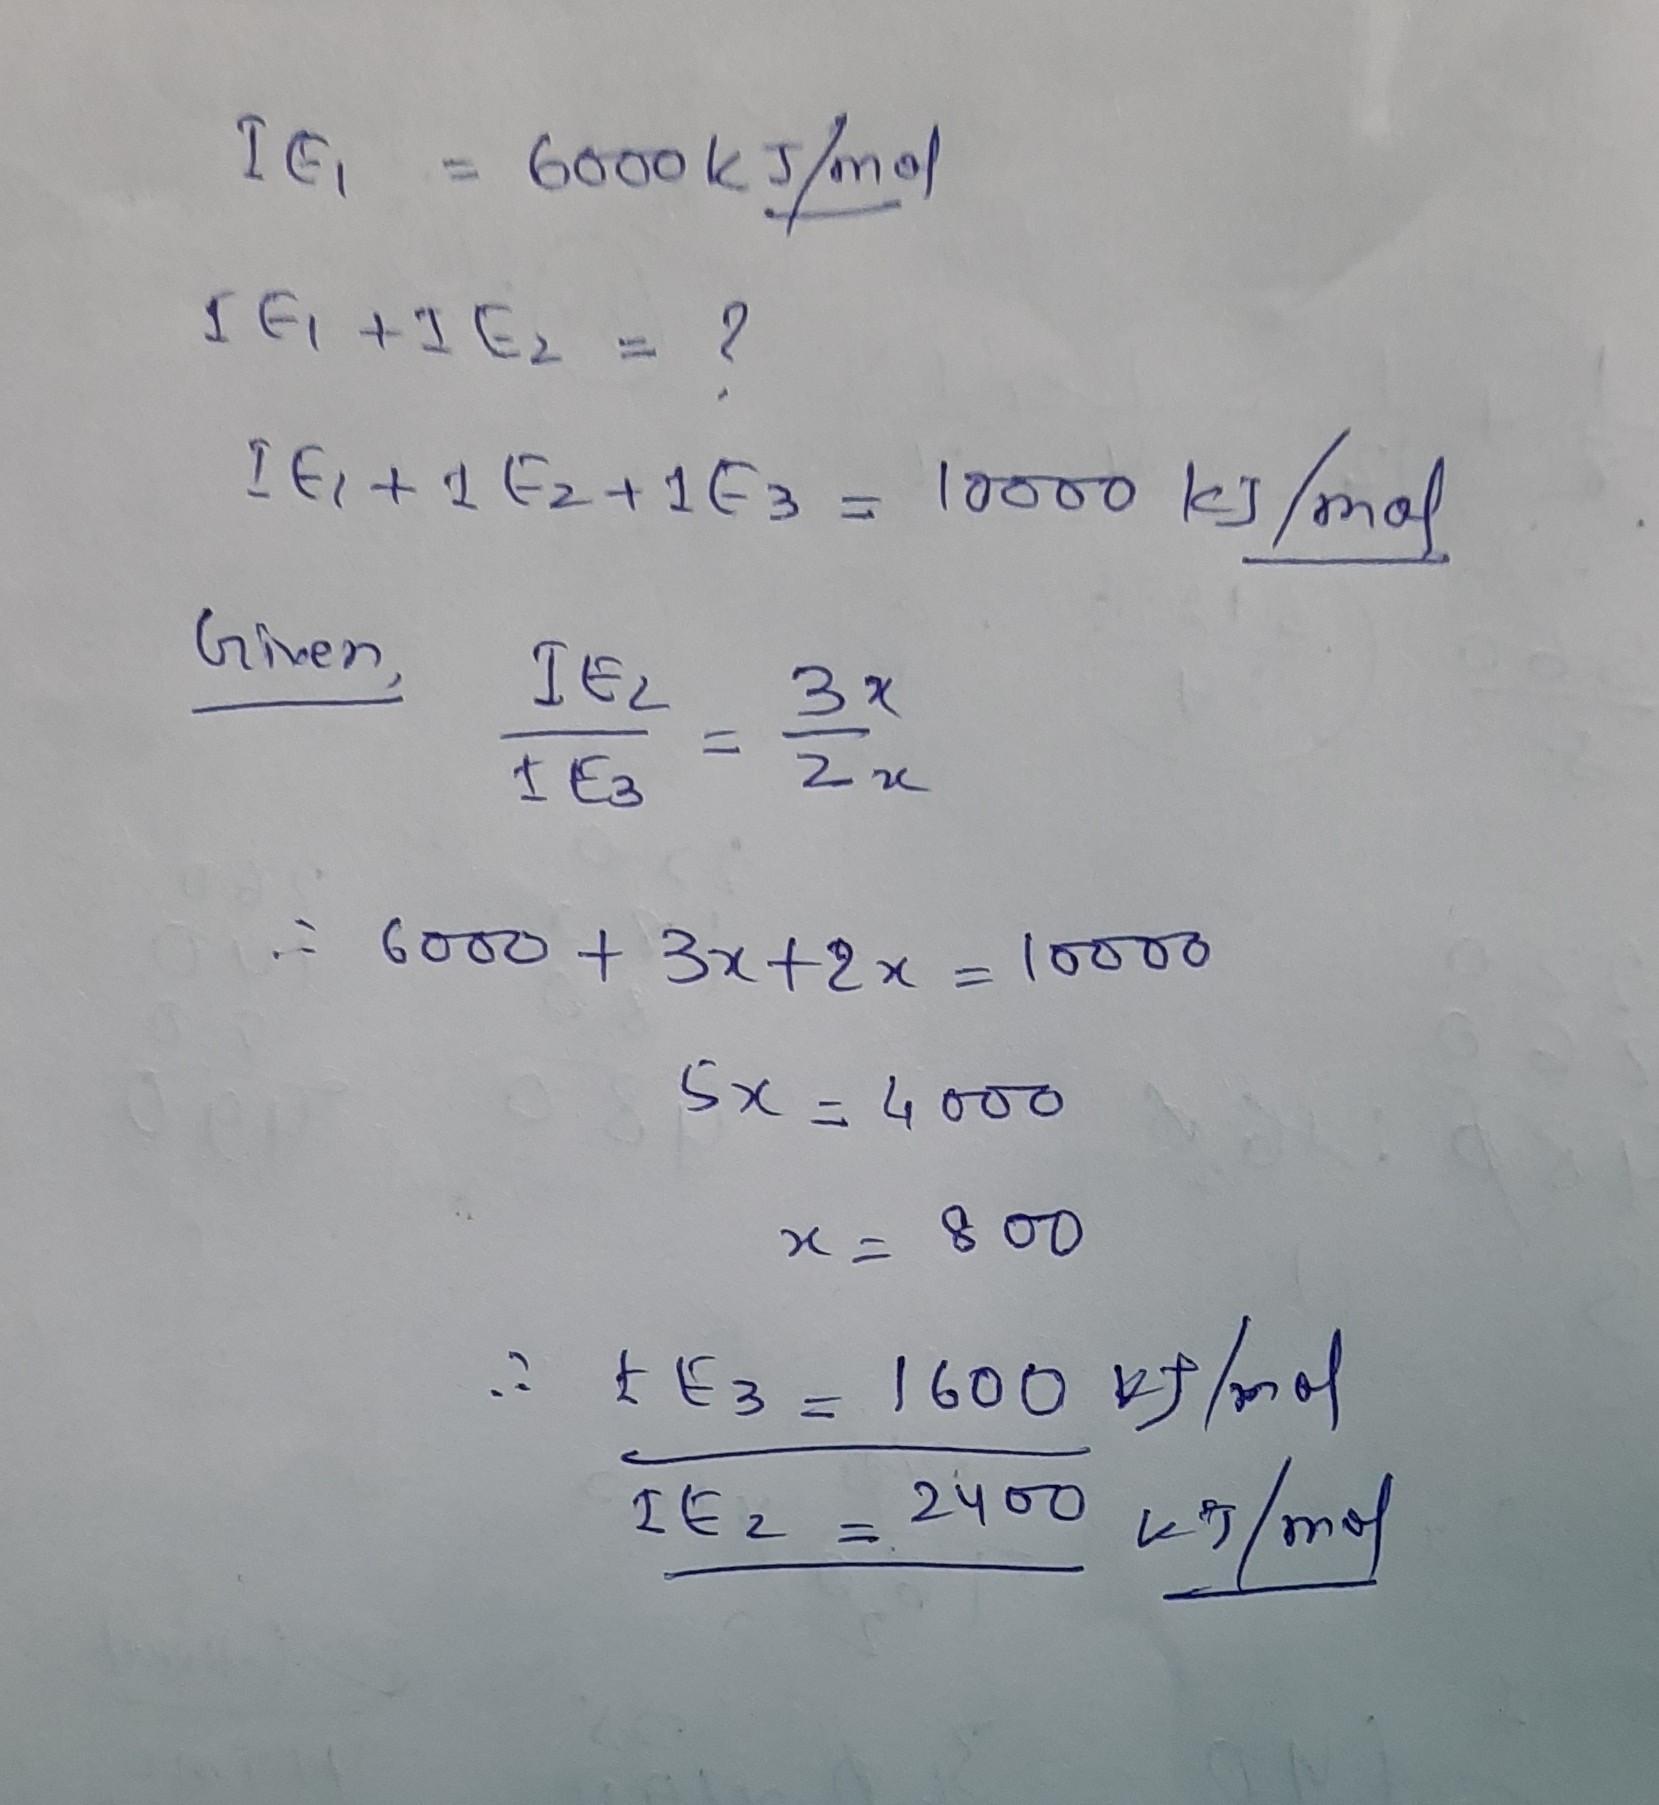 IE₁ = 6000 kJ/mol
IE₁ + IE₂ = ?
IE₁ + IE₂ + IE₃ = 10000 kJ/mol
Given, IE₂/IE₃ = 3x/2x
∴ 6000 + 3x + 2x = 10000
5x = 4000
x = 800
∴ IE₃ = 1600 kJ/mol
IE₂ = 2400 kJ/mol